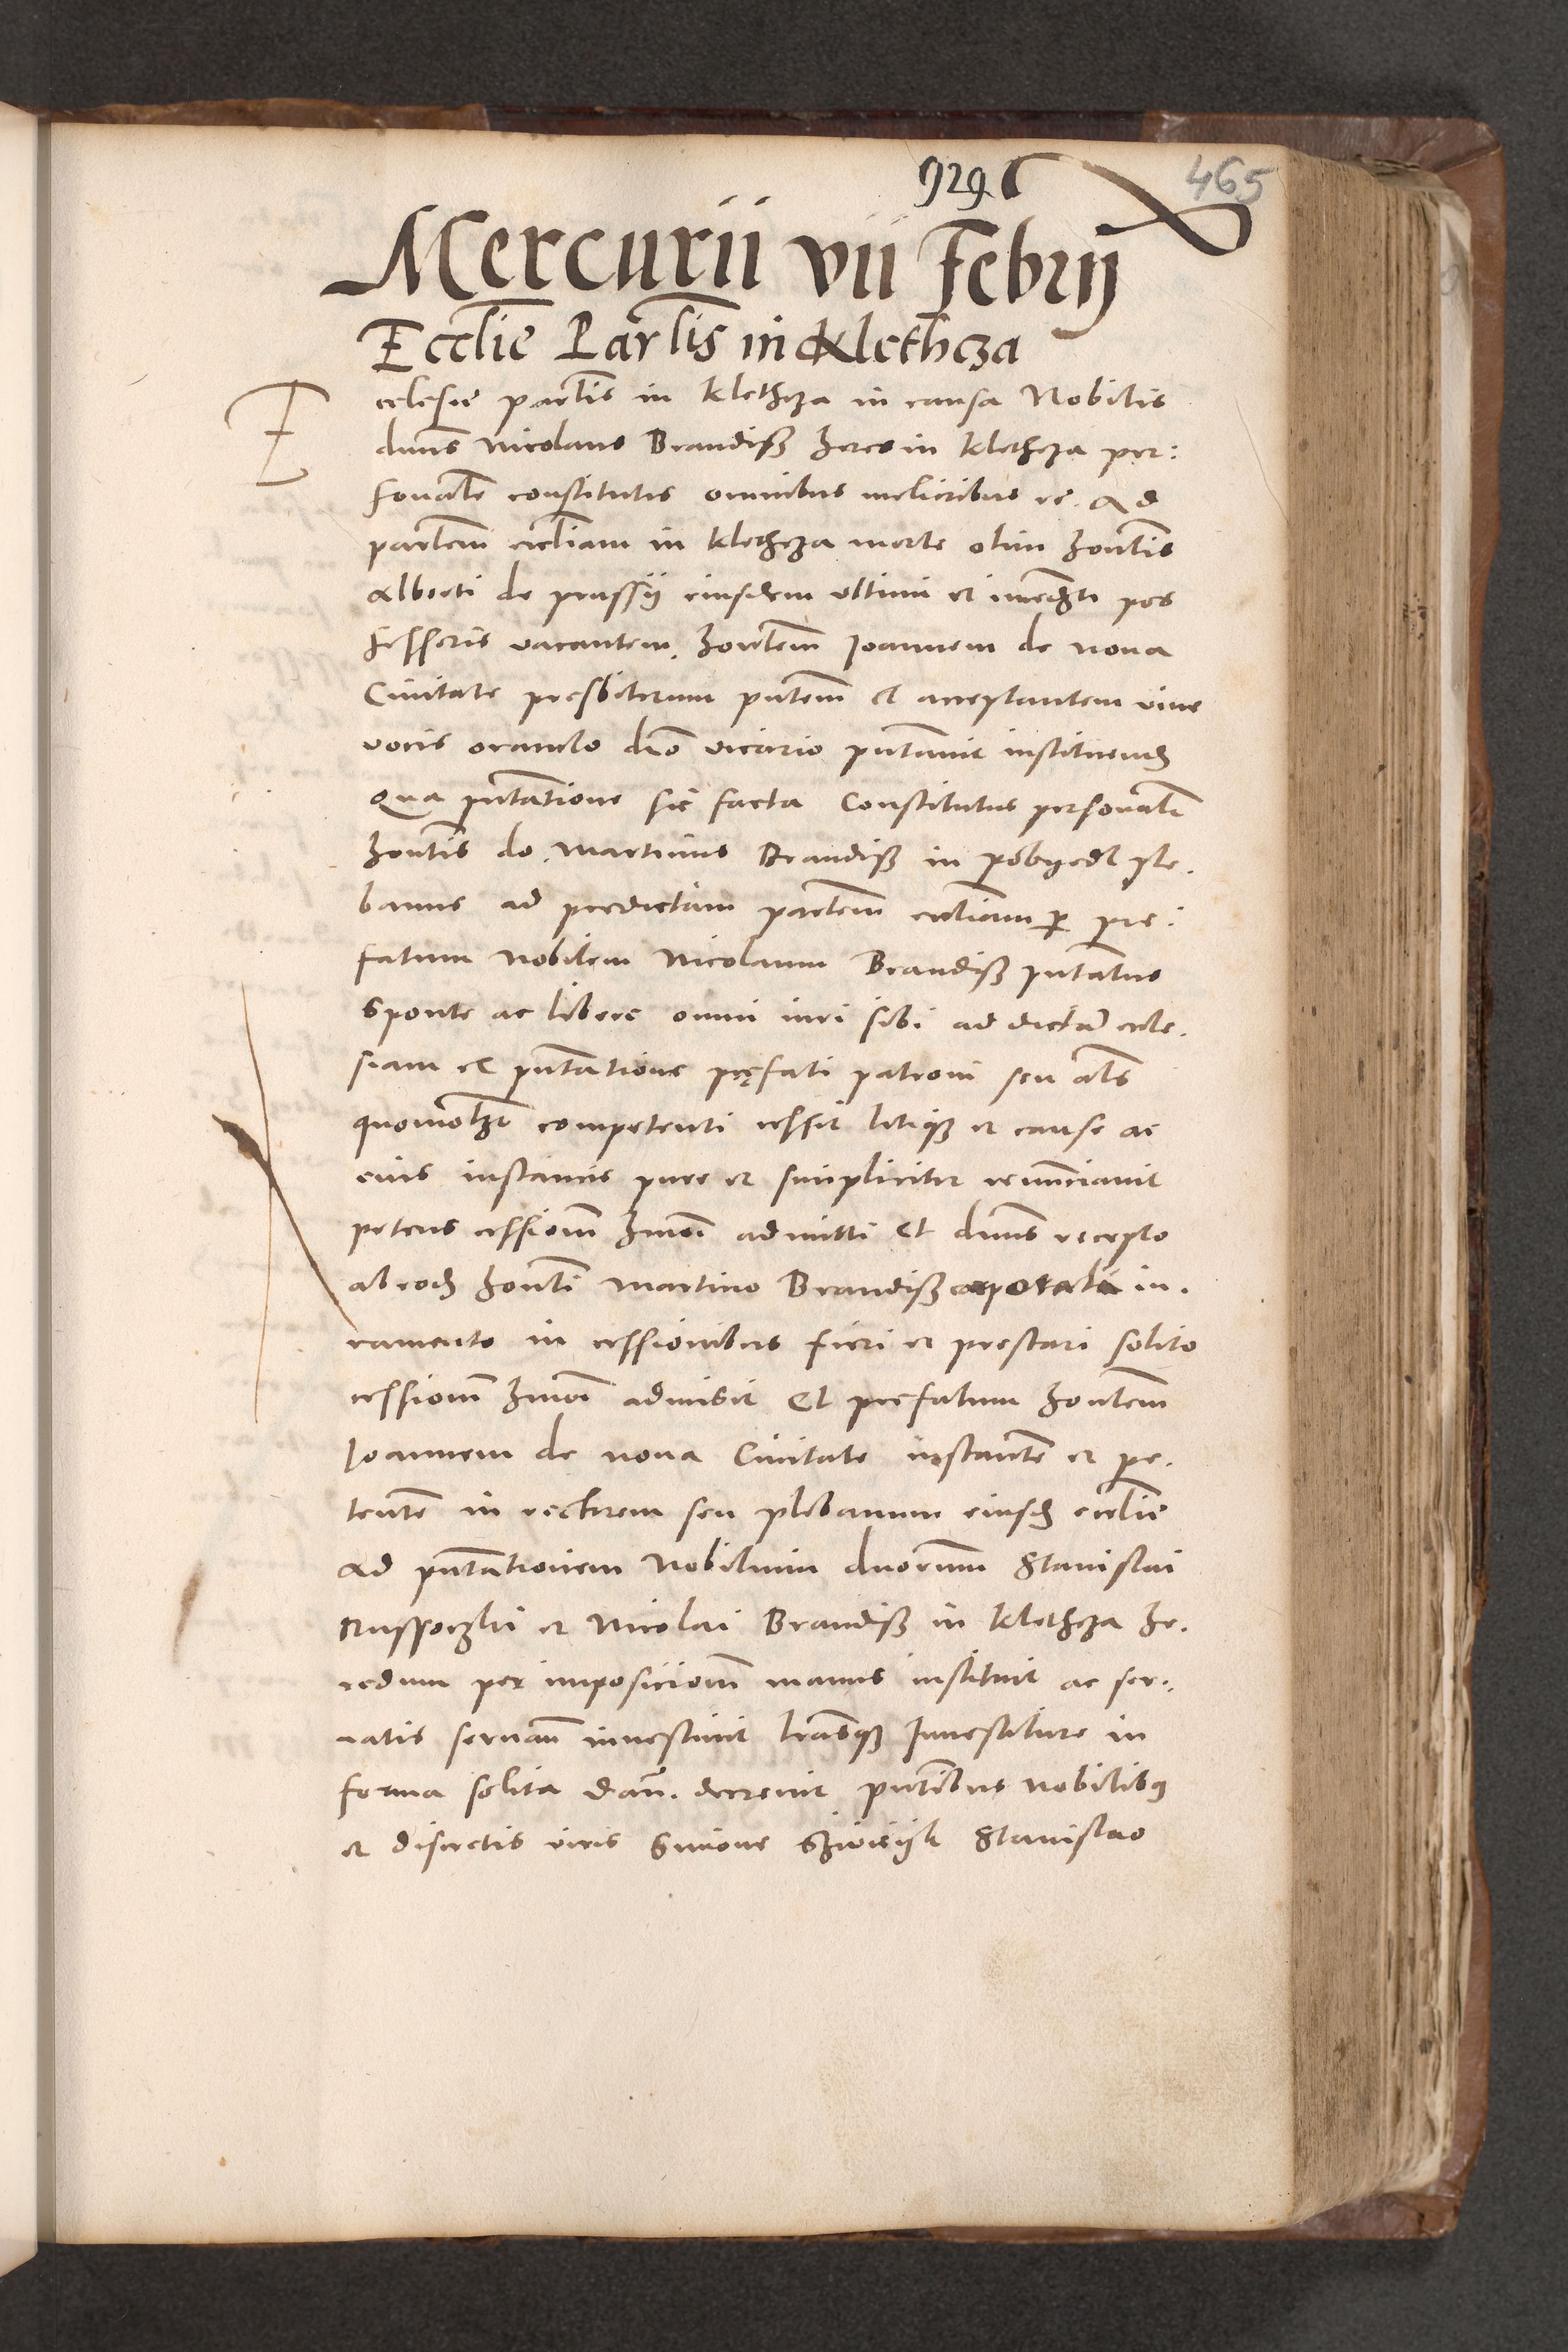 929
465
Mercurii vii Febrij
Ecclie Parlis in Klethcza
Ecclesie partis in Klethcza in causa Nobilis
dnus Nicolaus Brandiß heres in Klethcza per:
sonalr constitutis omnibus melioribus etc. Ad
partem eccliam in Klethcza morte olim honlis
Alberti de prussij eiusdem ultimi et immedti pos
sessoris vacantem. honlem Joannem de nova
Civitate presbiterum pntem et acceptantem vive
vocis oraculo dno vicario pntavit instituend
Qua pntatione sic facta Constitutus personalr
honlis do. Martinus Brandiß in pobyedl ple.
banus ad predictam partem eccliam per pre:
fatum Nobilem Nicolaum Brandiß pntatus
Sponte ac libere omni iuri sibi ad dictam eccle.
siam et pntatione pręfati patroni seu als
quomolt competenti cessit litique et cause ac
eius instancie pure et simpliciter renunciavit
petens cessionem hmoi admitti Et dnus recepto
ab eod honli Martino Brandiß corporali iu.
ramento in cessionibus fieri et prestari solito
cessionem hmoi admisit Et prefatum honlem
Joannem de nova Civitate instantem et pe.
tentem in rectorem seu plebanum eiusd ecclie
Ad pntationem Nobilium dnorum Stanislai
et Nicolai Brandiß in Klethcza he.
redum per imposicionem manus instituit ac ser:
vatis servan investivit lrasque Investiture in
forma solita dan. decrevit pntibus Nobilibus
et discretis viris Simone Stanislao